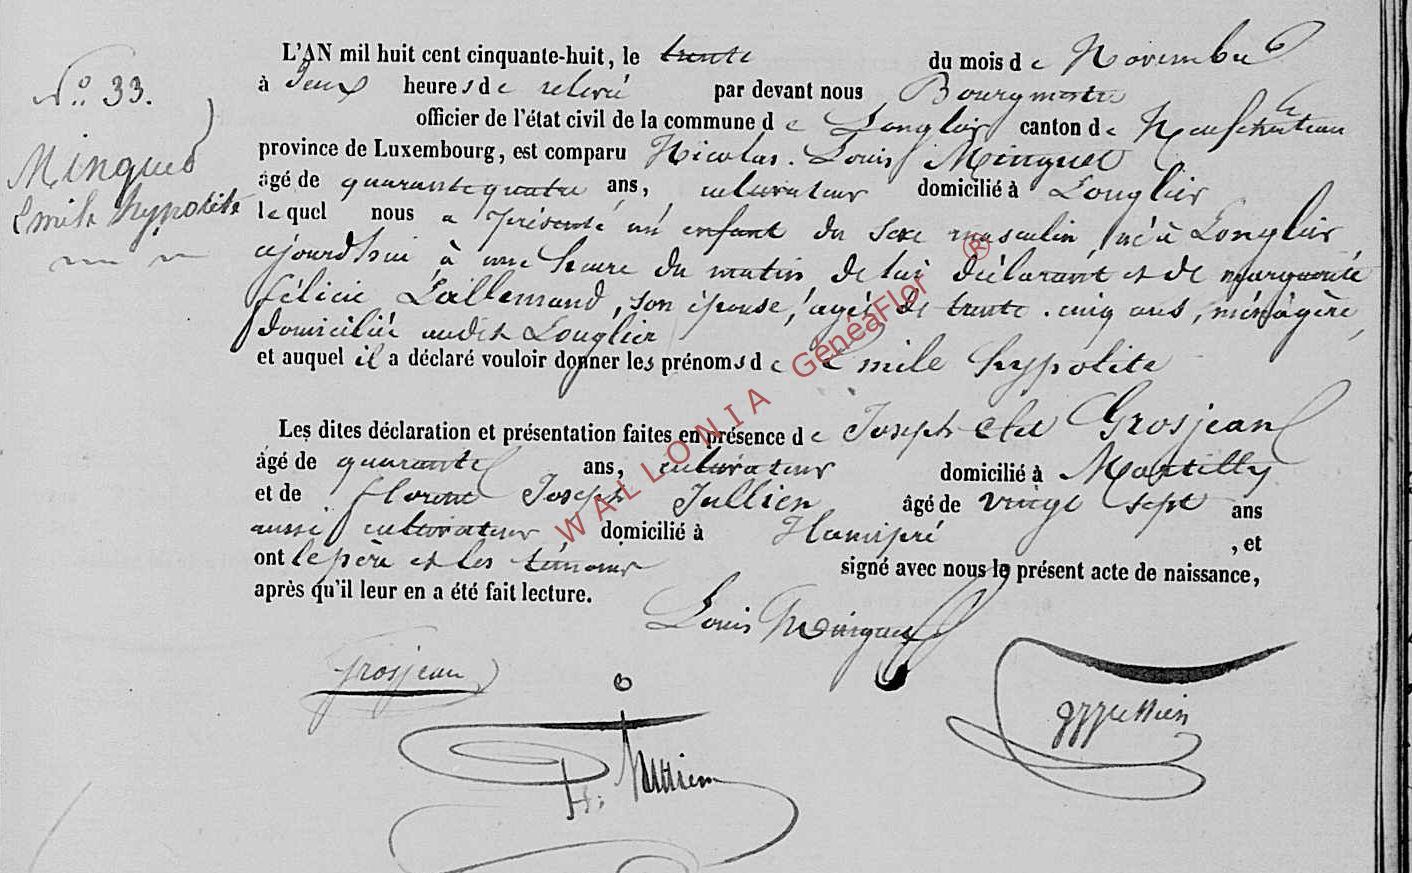 N.º 33.
Minguet
Emile hypolite
L'AN mil huit cent cinquante-huit, le trente du mois de Novembre
à deux heures de relevé par devant nous Bourgmestre
officier de l'état civil de la commune de Longlier canton de Neufchateau
province de Luxembourg, est comparu Nicolas Louis Minguet
âgé de quarante quatre ans, cultivateur domicilié à Longlier
lequel nous a présenté un enfant du sexe masculin, né à Longlier
ajourd'hui à une heure du matin de lui déclarant et de marguerite
félicie Lallemand, son épouse, agée de trente-cinq ans, ménagère,
domiciliée audit Longlier
et auquel il a déclaré vouloir donner les prénoms de Emile hypolite
Les dites déclaration et présentation faites en présence de Joseph Grosjean
âgé de quarante ans, cultivateur domicilié à Martilly
et de florent Joseph Jullien âgé de vingt sept ans
aussi cultivateur, domicilié à Hamipré , et
ont le père et les témoins signé avec nous le présent acte de naissance,
après qu'il leur en a été fait lecture.
Louis Minguet
Grosjean
WALLONIA GénéaFlor ®